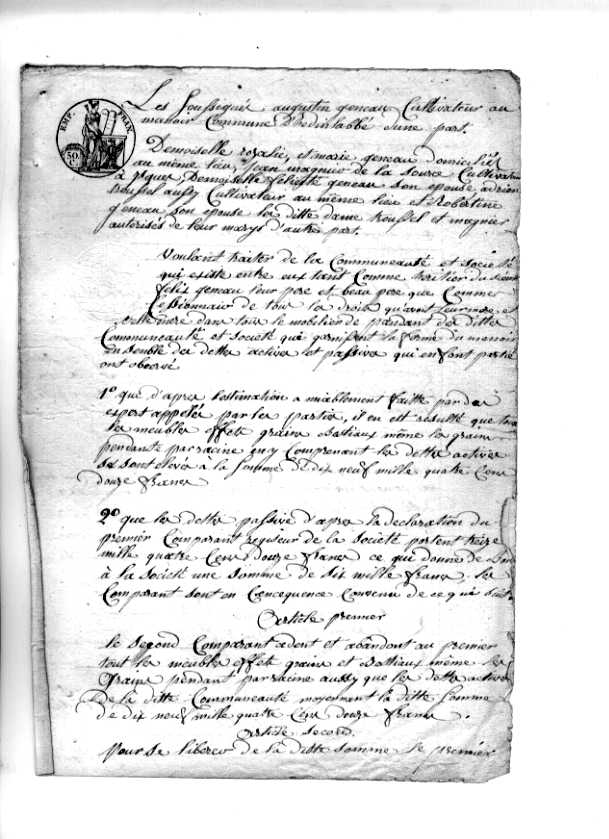 EMP. FRANX
50.
C.
Les Soussignés, augustin geneau Cultivateur au
manoir Commune D'hedinlabbé d'une part.
Demoiselle rosalie, et marie geneau domiciliés
au même lieu, jean magnier de la Source Cultivateur
à isques Demoiselle Celeste geneau son epouse adrien
roussel aussy Cultivateur au même lieu et Robertine
geneau son epouse les ditte dame roussel et magnier
autorisés de leur marys d'autre part.
Voulant traiter de la Communeauté et Société
qui existe entre eux tant Comme heritier du sieur
felix geneau leur pere et beau pere que Comme
Cessionnaire de tous les droits qu'avait leur mere et
belle mere dans tous le mobilier de pandant des dittes
Communeauté et société que garnissent la ferme du manoir
ensemble des dettes actives et passives qui en font partie
ont observé
1° que d'apres lestimation amieblement faitte par des
expert appelée par les partie, il en est resulté que tous
les meubles effets grains Bastiaux même les grains
pendants par racine en y Comprenant les dettes actives
se sont elevés a la Somme de dix neuf mille quatre Cens
douze francs
2° que les dettes passive d'apres la declaration du
premier Comparant regisseur de la Société portent treize
mille quatre Cens douze francs ce qui donne de
à la Societé une Somme de Six mille francs. les
Comparant sont en Concequence Convenu de ce qui Suit.
article premier
le Second Comparant cedent et abandont au premier
tout les meubles effets grains et Bastiaux même les
Grains pendant par racine aussy que les dettes active
De la ditte Communeauté moyennent la ditte Somme
de dix neuf mille quatre Cens douze francs.
article second.
Pour se liberer de la ditte somme le premier